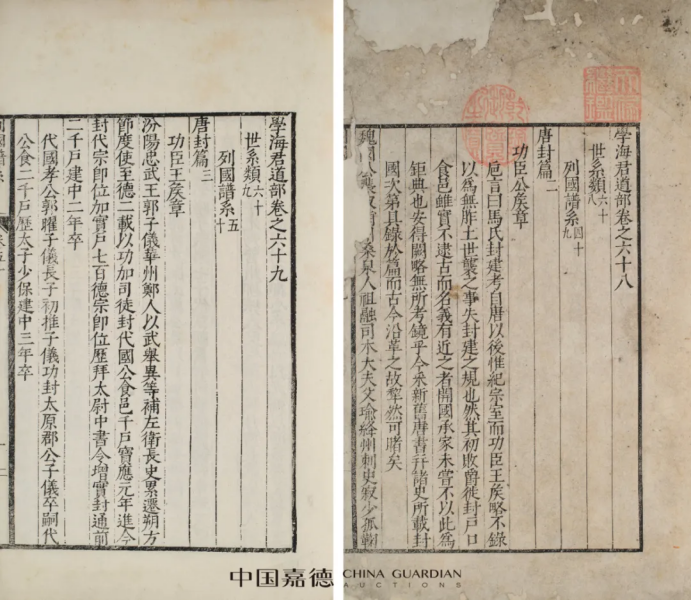 學海君道部卷之六十八
世系類六十八
列國譜系四十九
唐封篇二
功臣公矦章
卮言曰馬氏封建考自唐以後惟紀宗室而功臣王矦略不錄
以為無胙土世襲之事失封建之規也然其初敗爵徙封戶口
食邑雖實不逮古而名義有近之者開國承家未嘗不以此為
鉅典也安得闕略無所考鏡乎今釆新舊唐書幷諸史所載封
國次第具錄於篇而古今沿革之故犂然可睹矣
魏國公裴寂桑泉人祖融司木大夫父瑜絳州刺史寂少孤鞠
學海君道部卷之六十九
世系類六十九
列國譜系五十
唐封篇三
功臣王矦章
汾陽忠武王郭子儀華州鄭人以武舉異等補左衛長史累遷朔方
節度使至德二載以功加司徒封代國公食邑千戶寶應元年進今
封代宗卽位加實戶七百德宗卽位歷拜太尉中書令增實封通前
二千戶建中二年卒
代國孝公郭曜子儀長子初推子儀功封太原郡公子儀卒嗣代
公食二千戶歷太子少保建中三年卒
中国嘉德 CHINA GUARDIAN
AUCTIONS